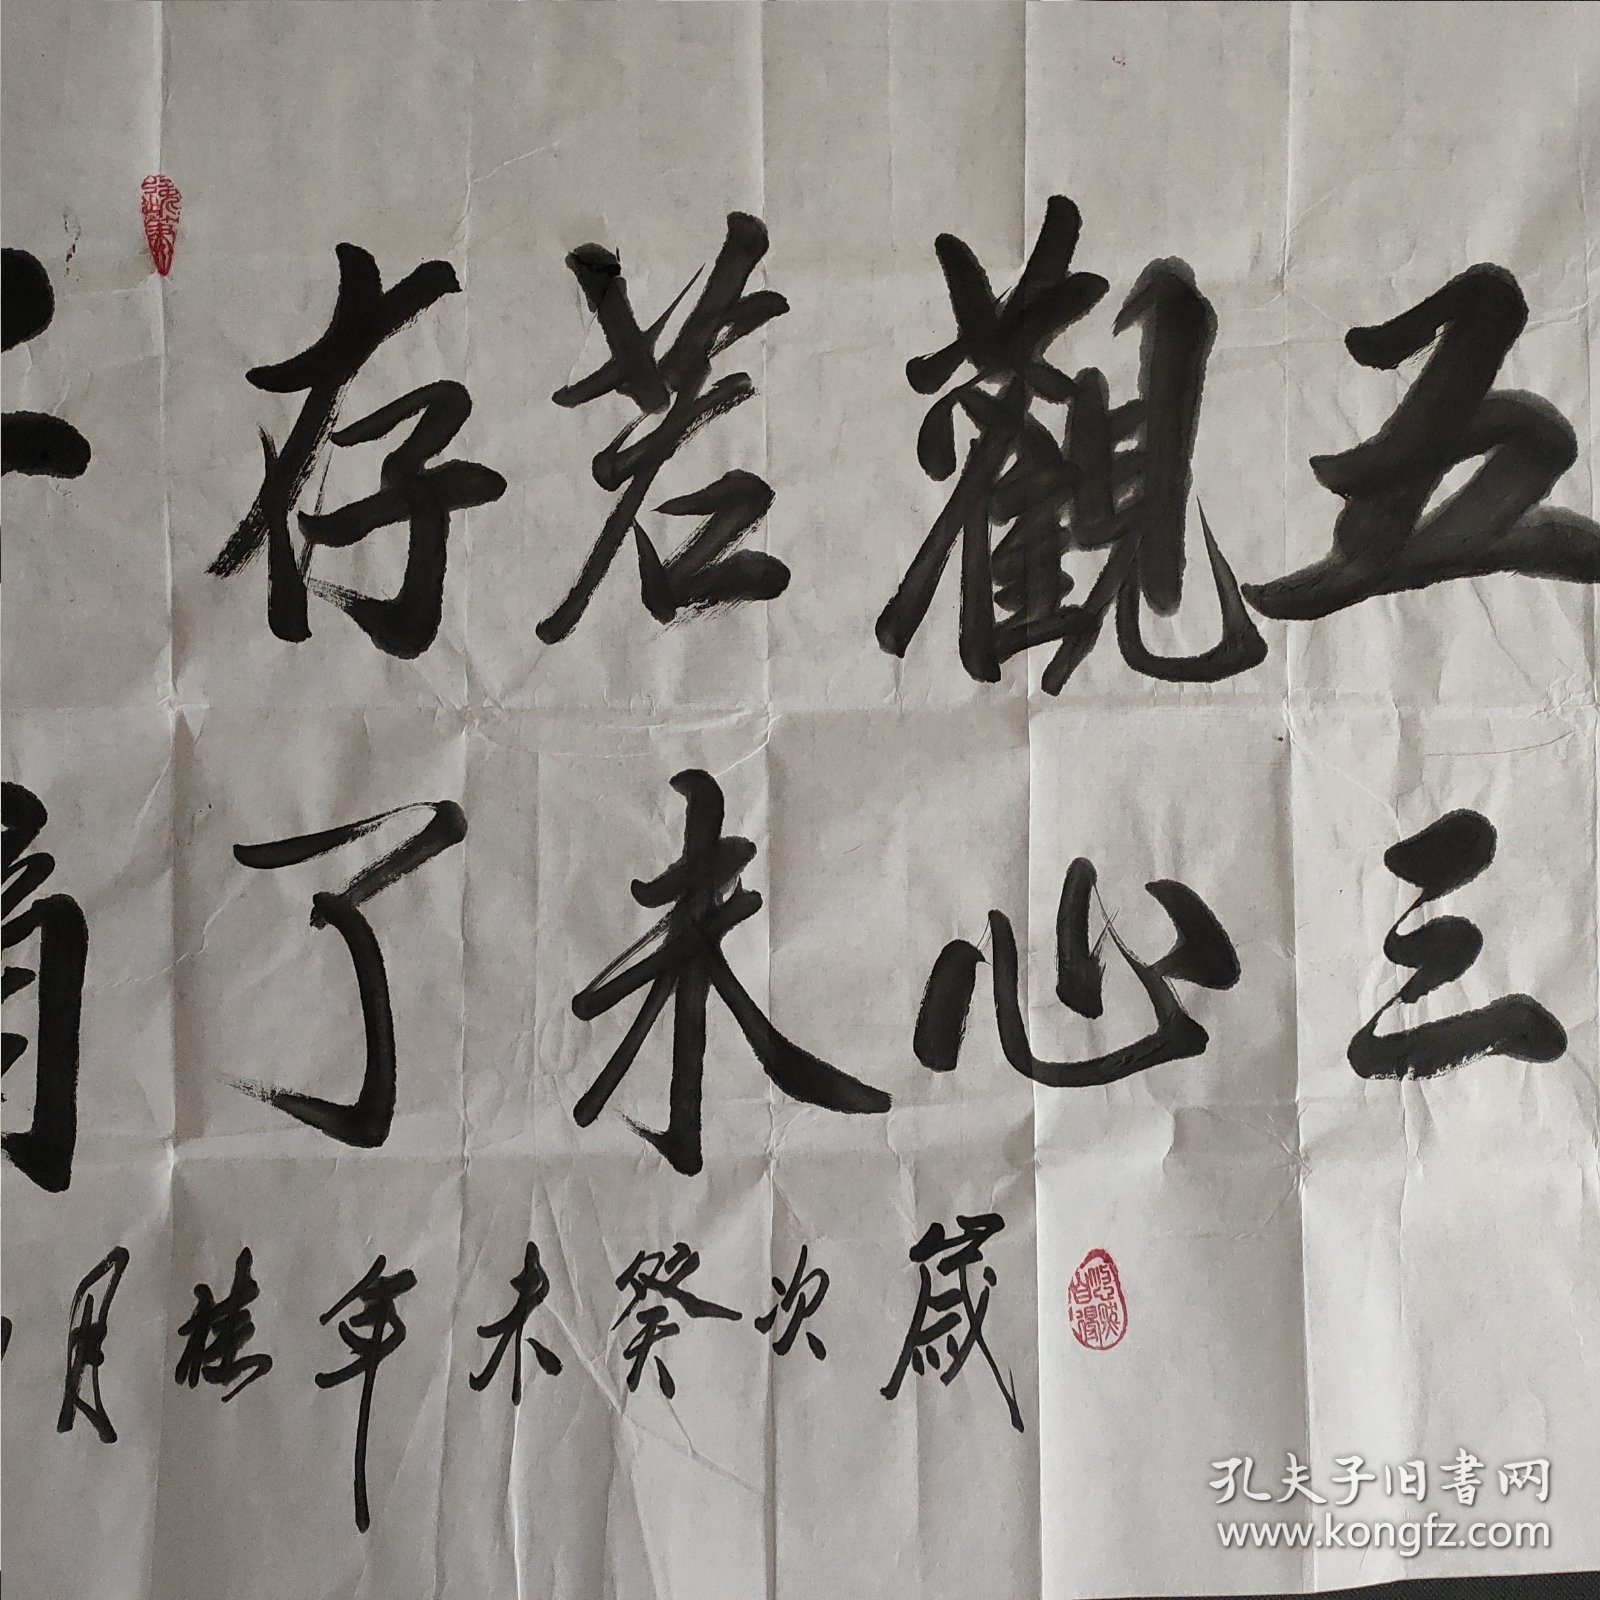 五觀若存
三心未了
歲次癸未年桂月
悠然自得
孔夫子旧书网
www.kongfz.com